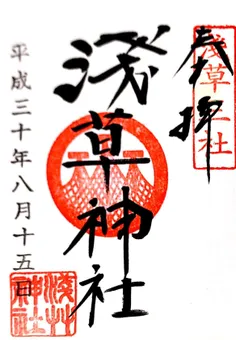 奉拝
淺草神社
淺草神社
平成三十年八月十五日
淺草
神社